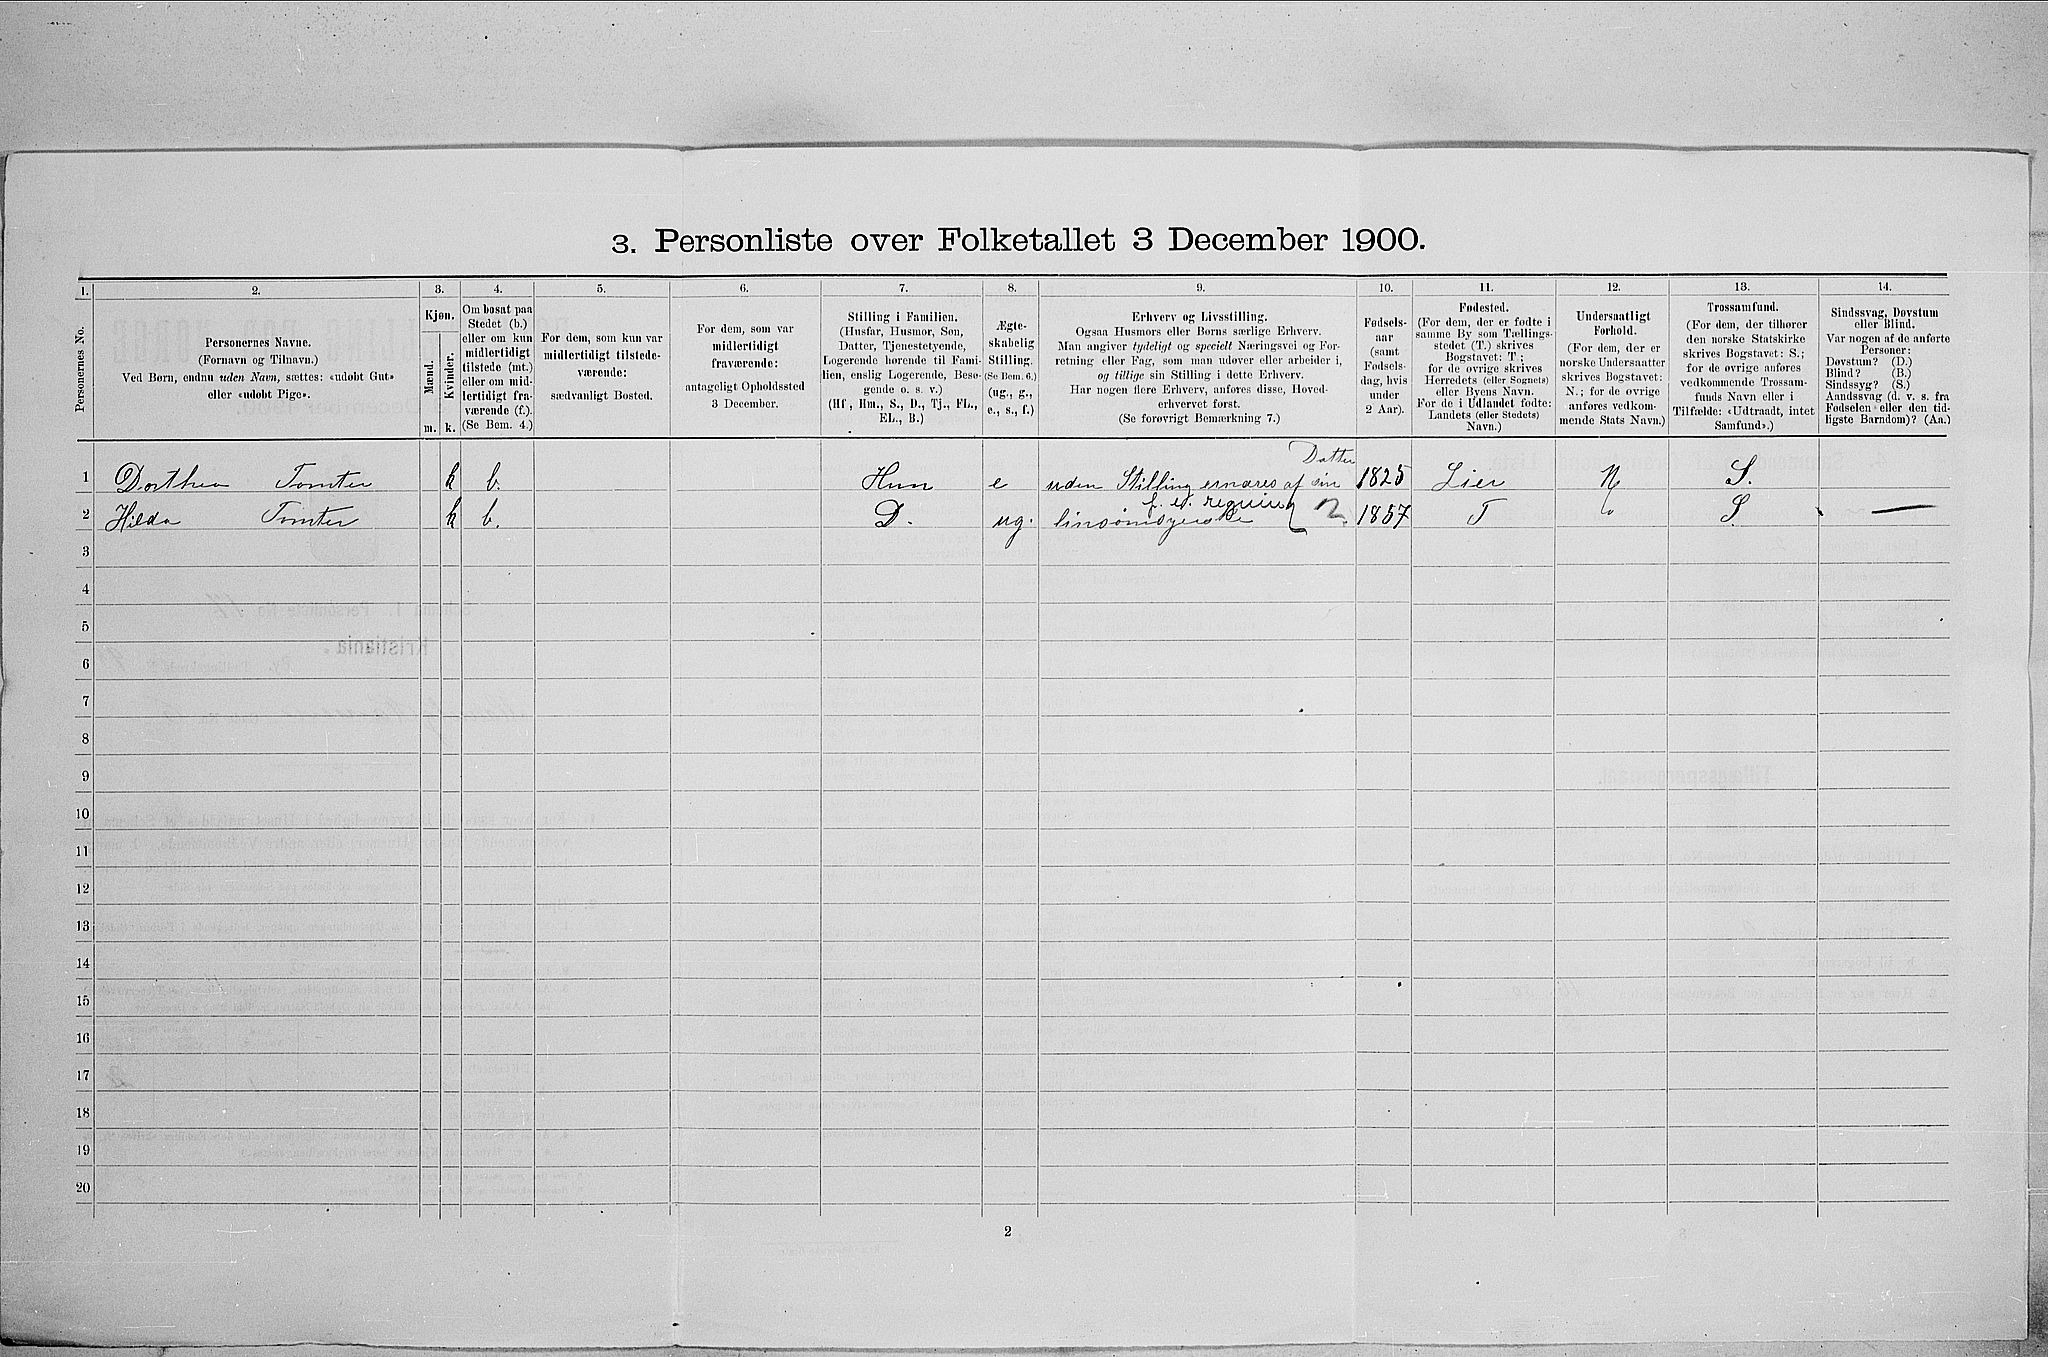 3. Personliste over Folketallet 3 December 1900.
1. 2. 3. 4. 5. 6. 7. 8. 9. 10. 11. 12. 13. 14.
Personernes No.
Personernes Navne.
(Fornavn og Tilnavn.)
Ved Børn, endnu uden Navn, sættes: «udøbt Gut»
eller «udøbt Pige».
Kjøn.
Mænd.
Kvinder.
m. k.
Om bosat paa
Stedet (b.)
eller om kun
midlertidigt
tilstede (mt.)
eller om mid-
lertidigt fra-
værende (f.).
(Se Bem. 4.)
For dem, som kun var
midlertidigt tilstede-
værende:
sædvanligt Bosted.
For dem, som var
midlertidigt
fraværende:
antageligt Opholdssted
3 December.
Stilling i Familien.
(Husfar, Husmor, Søn,
Datter, Tjenestetyende,
Logerende hørende til Fami-
lien, enslig Logerende, Besø-
gende o. s. v.)
(Hf., Hm., S., D., Tj., FL.,
EL., B.)
Ægte-
skabelig
Stilling.
(Se Bem. 6.)
(ug., g.,
e., s., f.)
Erhverv og Livsstilling.
Ogsaa Husmors eller Børns særlige Erhverv.
Man angiver tydeligt og specielt Næringsvei og For-
retning eller Fag, som man udøver eller arbeider i,
og tillige sin Stilling i dette Erhverv.
Har nogen flere Erhverv, anføres disse, Hoved-
erhvervet først.
(Se forøvrigt Bemærkning 7.)
Fødsels-
aar
(samt
Fødsels-
dag, hvis
under
2 Aar).
Fødested.
(For dem, der er fødte i
samme By som Tællings-
stedet (T.) skrives
Bogstavet: T;
for de øvrige skrives
Herredets (eller Sognets)
eller Byens Navn.
For de i Udlandet fødte:
Landets (eller Stedets)
Navn.)
Undersaatligt
Forhold.
(For dem, der er
norske Undersaatter
skrives Bogstavet:
N.; for de øvrige
anføres vedkom-
mende Stats Navn.)
Trossamfund.
(For dem, der tilhører
den norske Statskirke
skrives Bogstavet: S.;
for de øvrige anføres
vedkommende Trossam-
funds Navn eller i
Tilfælde: «Udtraadt, intet
Samfund».)
Sindssvag, Døvstum
eller Blind.
Var nogen af de anførte
Personer:
Døvstum? (D.)
Blind? (B.)
Sindssyg? (S.)
Aandssvag (d. v. s. fra
Fødselen eller den tid-
ligste Barndom)? (Aa.)
Datter
1 Dorthea Tomter k b. Hm e uden Stilling ernæres af sin 1825 Lier N S.
f. et. regning
2 Hilda Tomter k b. D. ug. linsømsyerske 2. 1857 T S —
3
4
5
6
7
8
9
10
11
12
13
14
15
16
17
18
19
20
2